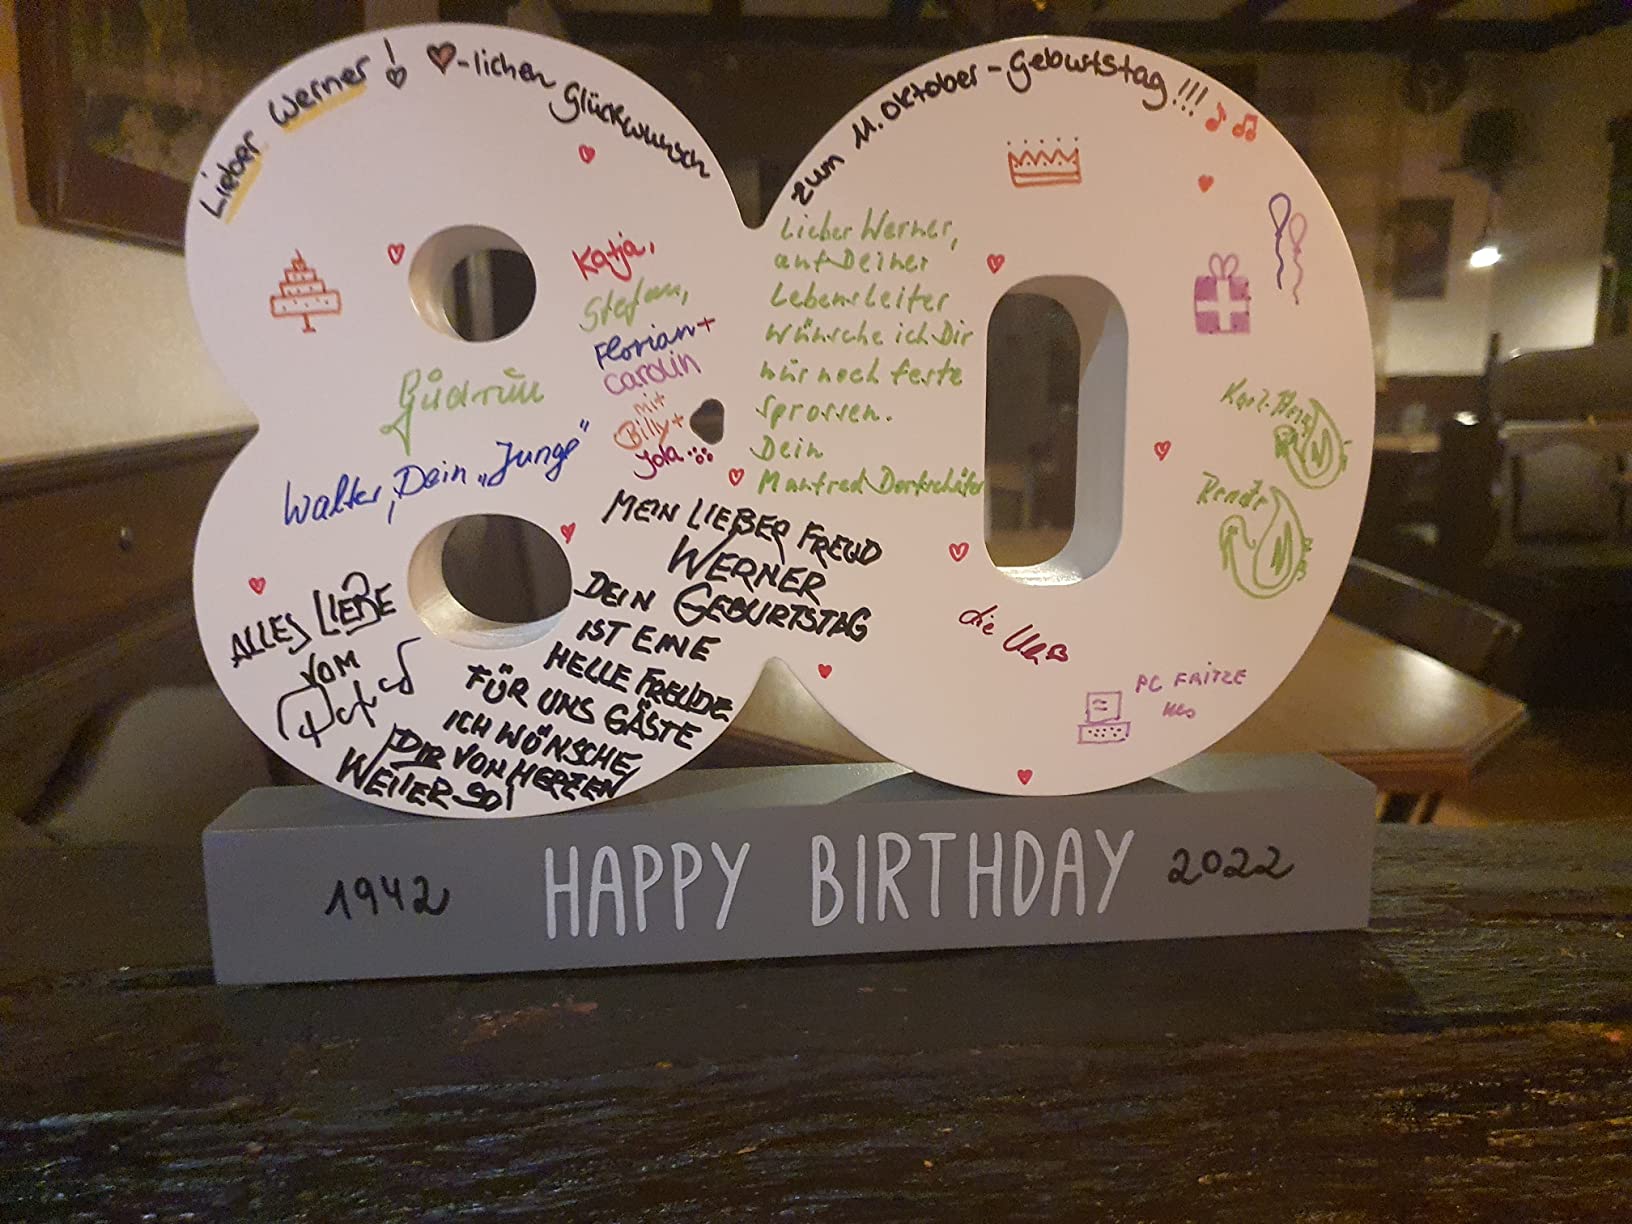 Lieber Werner! ♥-lichen Glückwunsch
zum 11. Oktober-Geburtstag!!!
Katja,
Stefan,
Florian+
Carolin
mit
Billy+
Jola
Gudrun
Walter, Dein „Junge"
Lieber Werner,
auf Deiner
Lebensleiter
wünsche ich Dir
nur noch feste
Sprossen.
Dein
Manfred Dorfschäfer
Karl-Heinz
Renate
MEIN LIEBER FREUD
WERNER
DEIN GEBURTSTAG
IST EINE
HELLE FREUDE
FÜR UNS GÄSTE
ICH WÜNSCHE
DIR VON HERZEN
WEITER SO!
ALLES LIEBE
VOM
die
PC FRITZE
1942 HAPPY BIRTHDAY 2022